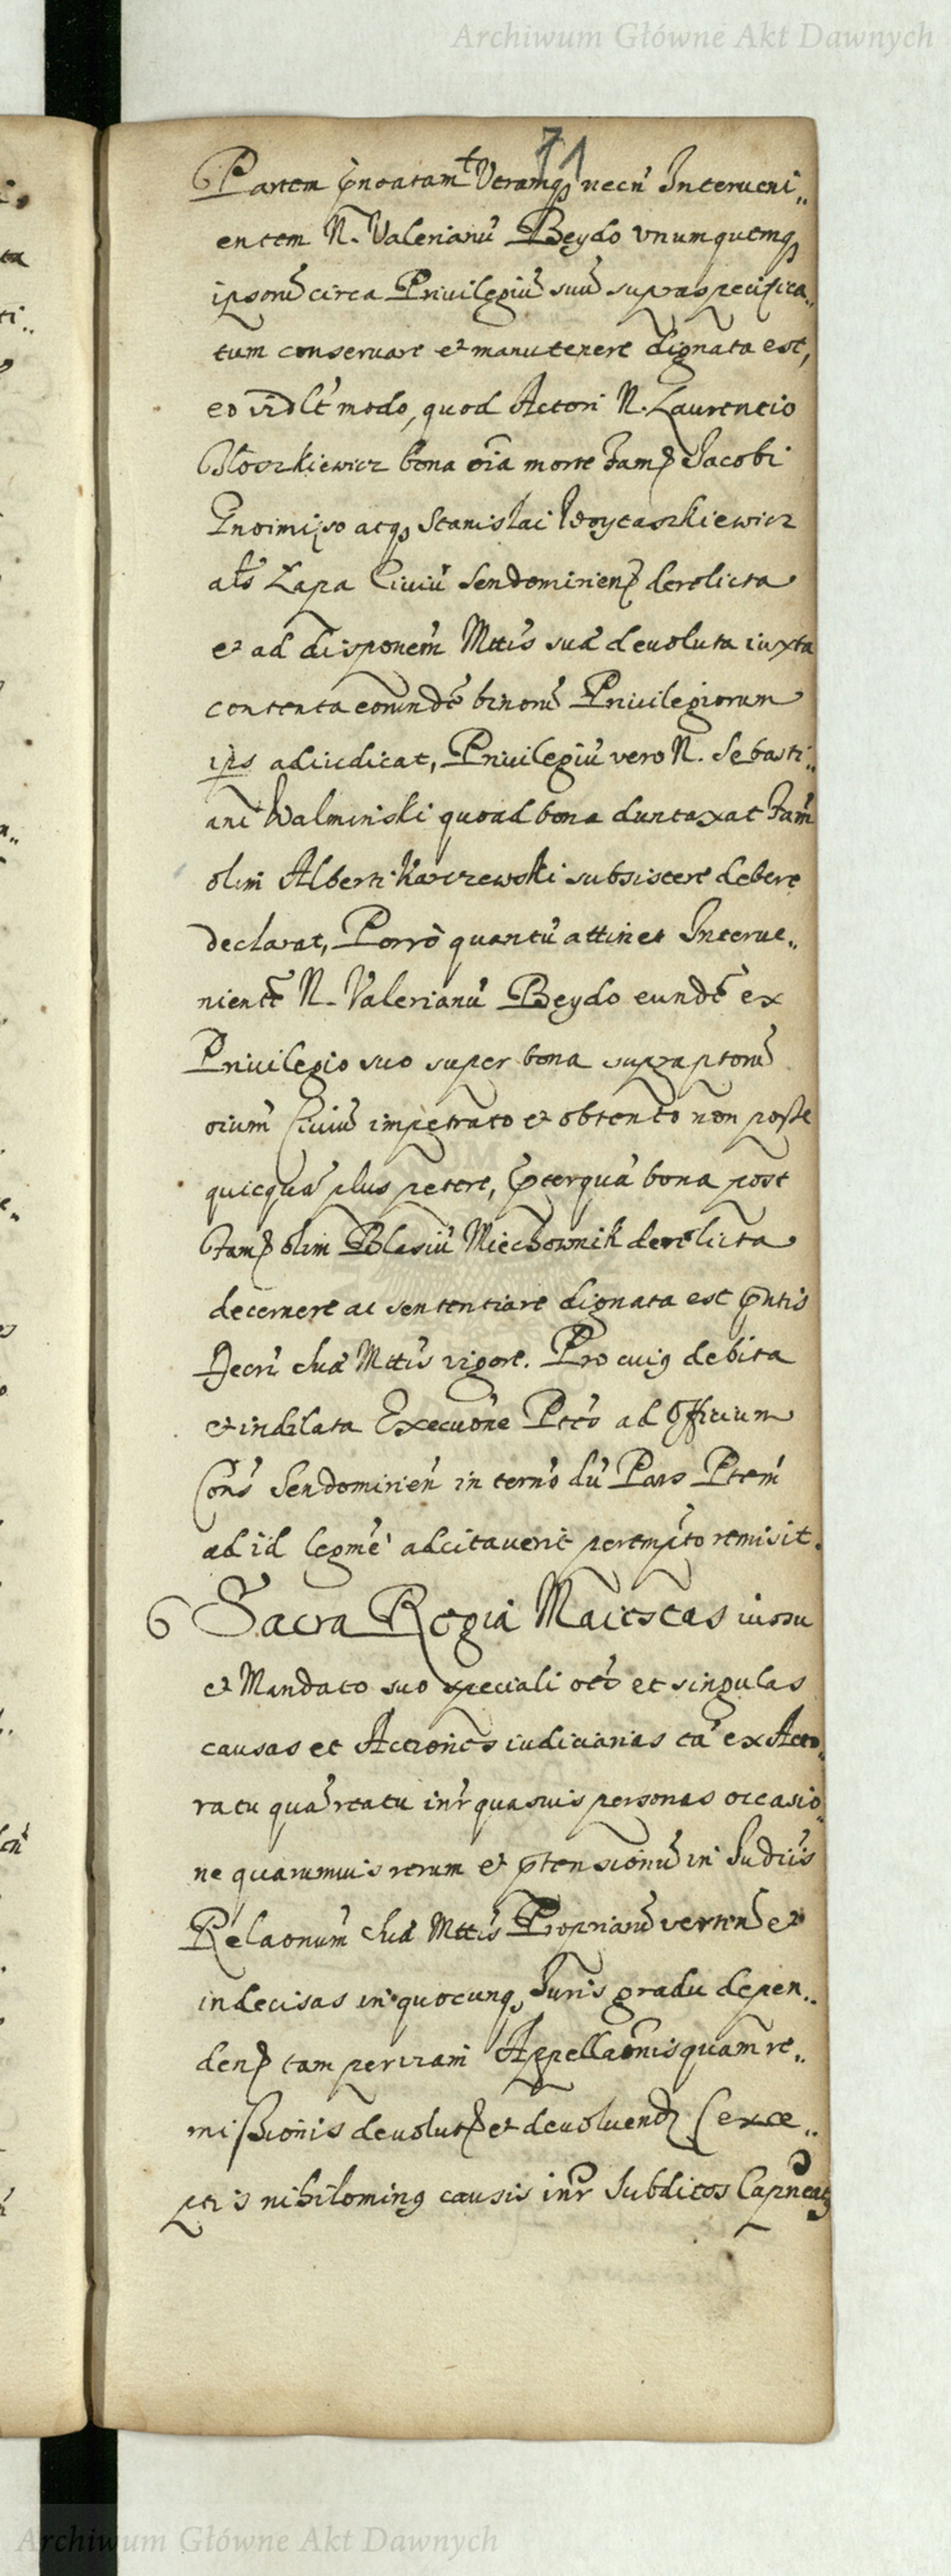 Archiwum Główne Akt Dawnych
71
Partem pnoatam Vtramqз necñ Interueni„
entem N. Valerianũ Beydo vnumquemqз
ipsorũ circa Priuilegiũ suũ supraspecifica„
tum conseruare et manutenere dignata est,
eo vidlt modo, quod Actori N. Laurentio
Błoszkiewicz bona oĩa morte Fam Jacobi
Gnoimiso atqз Stanislai Woytaszkiewicz
als Łapa Ciuiũ Sendomirien derelicta
et ad disponem Mttis suæ deuoluta iuxta
contenta eorundẽ binorũ Priuilegiorum
ips adiudicat, Priuilegiũ vero N. Sebasti„
ani Walminski quoad bona duntaxat Fam
olim Alberti Karczewski subsistere debere
declarat, Porrò quantũ attinet Interue„
nientẽ N. Valerianũ Beydo eundẽ ex
Priuilegio suo super bona supraptorũ
oium Ciuiũ impetrato et obtento non posse
quicquã plus petere, pterquã bona post
Fam olim Blasiũ Miechownik derelicta
decernere ac sententiare dignata est pntis
Decri suæ Mttis vigore. Pro cuiꝯ debita
et indilata Execuõne Ptes ad Officium
Cons Sendomirieñ in terno dũ Pars Ptem
ad id legme adcitauerit perempto remisit.
6 Sacra Regia Maiestas iussu
et Mandato suo speciali oes et singulas
causas et Actiones iudiciarias tã ex Acto„
ratu quã reatu inr quasuis personas occasio„
ne quarumuis rerum et ptensionũ in Iudiis
Relaonum suæ Mttis Propriarũ verten et
indecisas in quocunqз Iuris gradu depen„
den tam per viam Appellaõnis quam re„
missionis deuolut et deuoluend (exce„
ptis nihilominꝯ causis inr Subditos Capneat
Archiwum Główne Akt Dawnych